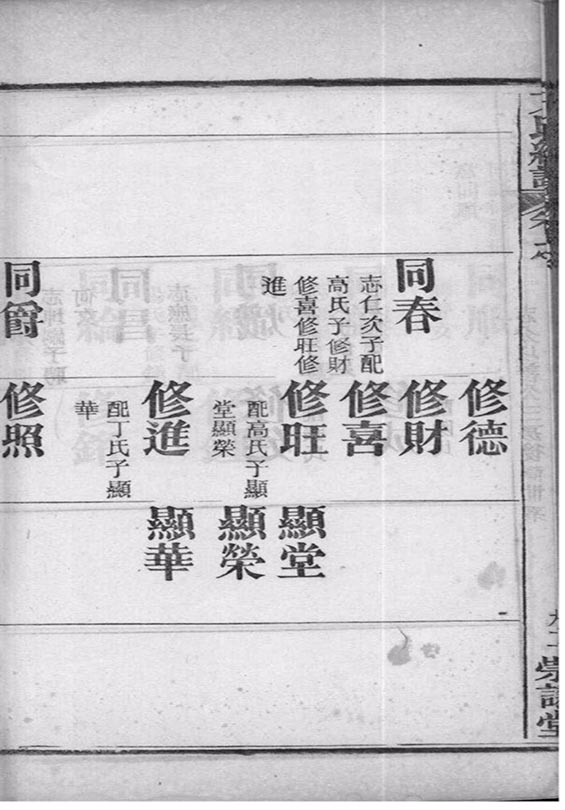 同春
志仁次子配
高氏子修財
修喜修旺修
進
同爵
修德
修財
修喜
修旺
配高氏子顯
堂顯榮
修進
配丁氏子顯
華
修照
顯堂
顯榮
顯華